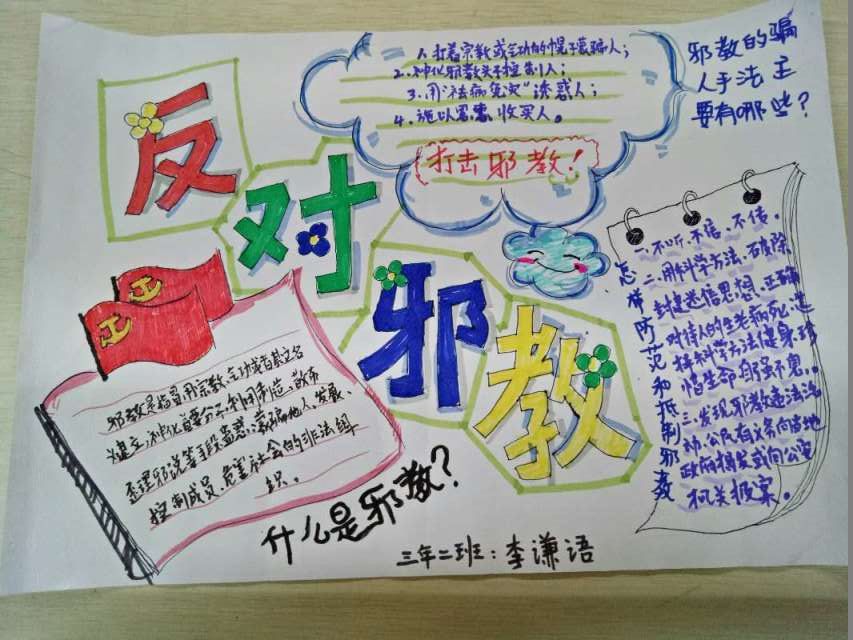 反对邪教
1.打着宗教或气功的幌子蒙骗人;
2.神化邪教头子控制人;
3.用"祛病免灾"诱惑人;
4.施以恩惠,收买人。
打击邪教!
邪教的骗
人手法主
要有哪些?
怎样防范和抵制邪教
一、不听、不信、不传。
二、用科学方法、破除
封建迷信思想,正确
对待人的生老病死,选
择科学方法健身,珍
惜生命,自强不息。
三、发现邪教违法活
动,公民有义务向当地
政府揭发或向公安
机关报案。
邪教是指冒用宗教、气功或者其它名
义建立,神化首要分子,利用制造、散布
歪理邪说等手段蛊惑、蒙骗他人,发展、
控制成员,危害社会的非法组
织。
什么是邪教?
三年二班:李谦语